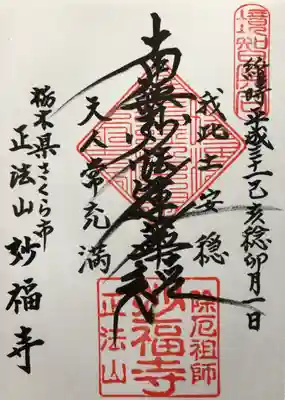 維時平成三十一己亥稔卯月一日
我此土安穏
南無妙法蓮華経
天人常充満
栃木県さくら市
正法山 妙福寺
除厄祖師
妙福寺
正法山